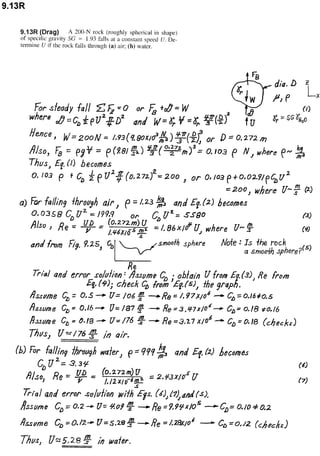 9.13R
9.13R (Drag) A 200-N rock (roughly spherical in shape)
of specific gravity SG = 1.93 falls at a constant speed U. De-
termine U if the rock falls through (a) air; (b) water.
F_B
dia. D
z
x
𝒟
W
γ_r
μ, ρ
For steady fall ΣF_z = 0 or F_B + 𝒟 = W (1)
where 𝒟 = C_D ½ρU² π/4 D² and W = γ_r V = γ_r 4π/3 (D/2)³, γ_r = SG γ_H₂O
Hence, W = 200N = 1.93(9.80×10³ N/m³) 4π/3 (D/2)³, or D = 0.272 m
Also, F_B = ρgV = ρ(9.81 m/s²) 4π/3 (0.272/2 m)³ = 0.103 ρ N, where ρ ~ kg/m³
Thus, Eq.(1) becomes
0.103 ρ + C_D ½ρ U² π/4 (0.272)² = 200, or 0.103ρ + 0.0291ρC_D U²
= 200, where U ~ m/s (2)
a) For falling through air, ρ = 1.23 kg/m³ and Eq.(2) becomes
0.0358 C_D U² = 199.9 or C_D U² = 5580 (3)
Also, Re = UD/ν = (0.272m)U / 1.46×10⁻⁵ m²/s = 1.86×10⁴ U, where U ~ m/s (4)
and from Fig. 9.25, C_D smooth sphere Note: Is the rock
a smooth sphere? (5)
Re
Trial and error solution: Assume C_D; obtain U from Eq.(3), Re from
Eq.(4); check C_D from Eq.(5), the graph.
Assume C_D = 0.5 → U = 106 m/s → Re = 1.97×10⁶ → C_D = 0.16 ≠ 0.5
Assume C_D = 0.16 → U = 187 m/s → Re = 3.47×10⁶ → C_D = 0.18 ≠ 0.16
Assume C_D = 0.18 → U = 176 m/s → Re = 3.27×10⁶ → C_D = 0.18 (checks)
Thus, U = 176 m/s in air.
(b) For falling through water, ρ = 999 kg/m³ and Eq.(2) becomes
C_D U² = 3.34 (6)
Also, Re = UD/ν = (0.272m)U / 1.12×10⁻⁶ m²/s = 2.43×10⁵ U (7)
Trial and error solution with Eqs. (6),(7),and (5).
Assume C_D = 0.2 → U = 4.09 m/s → Re = 9.94×10⁵ → C_D = 0.10 ≠ 0.2
Assume C_D = 0.12 → U = 5.28 m/s → Re = 1.28×10⁶ → C_D = 0.12 (checks)
Thus, U = 5.28 m/s in water.